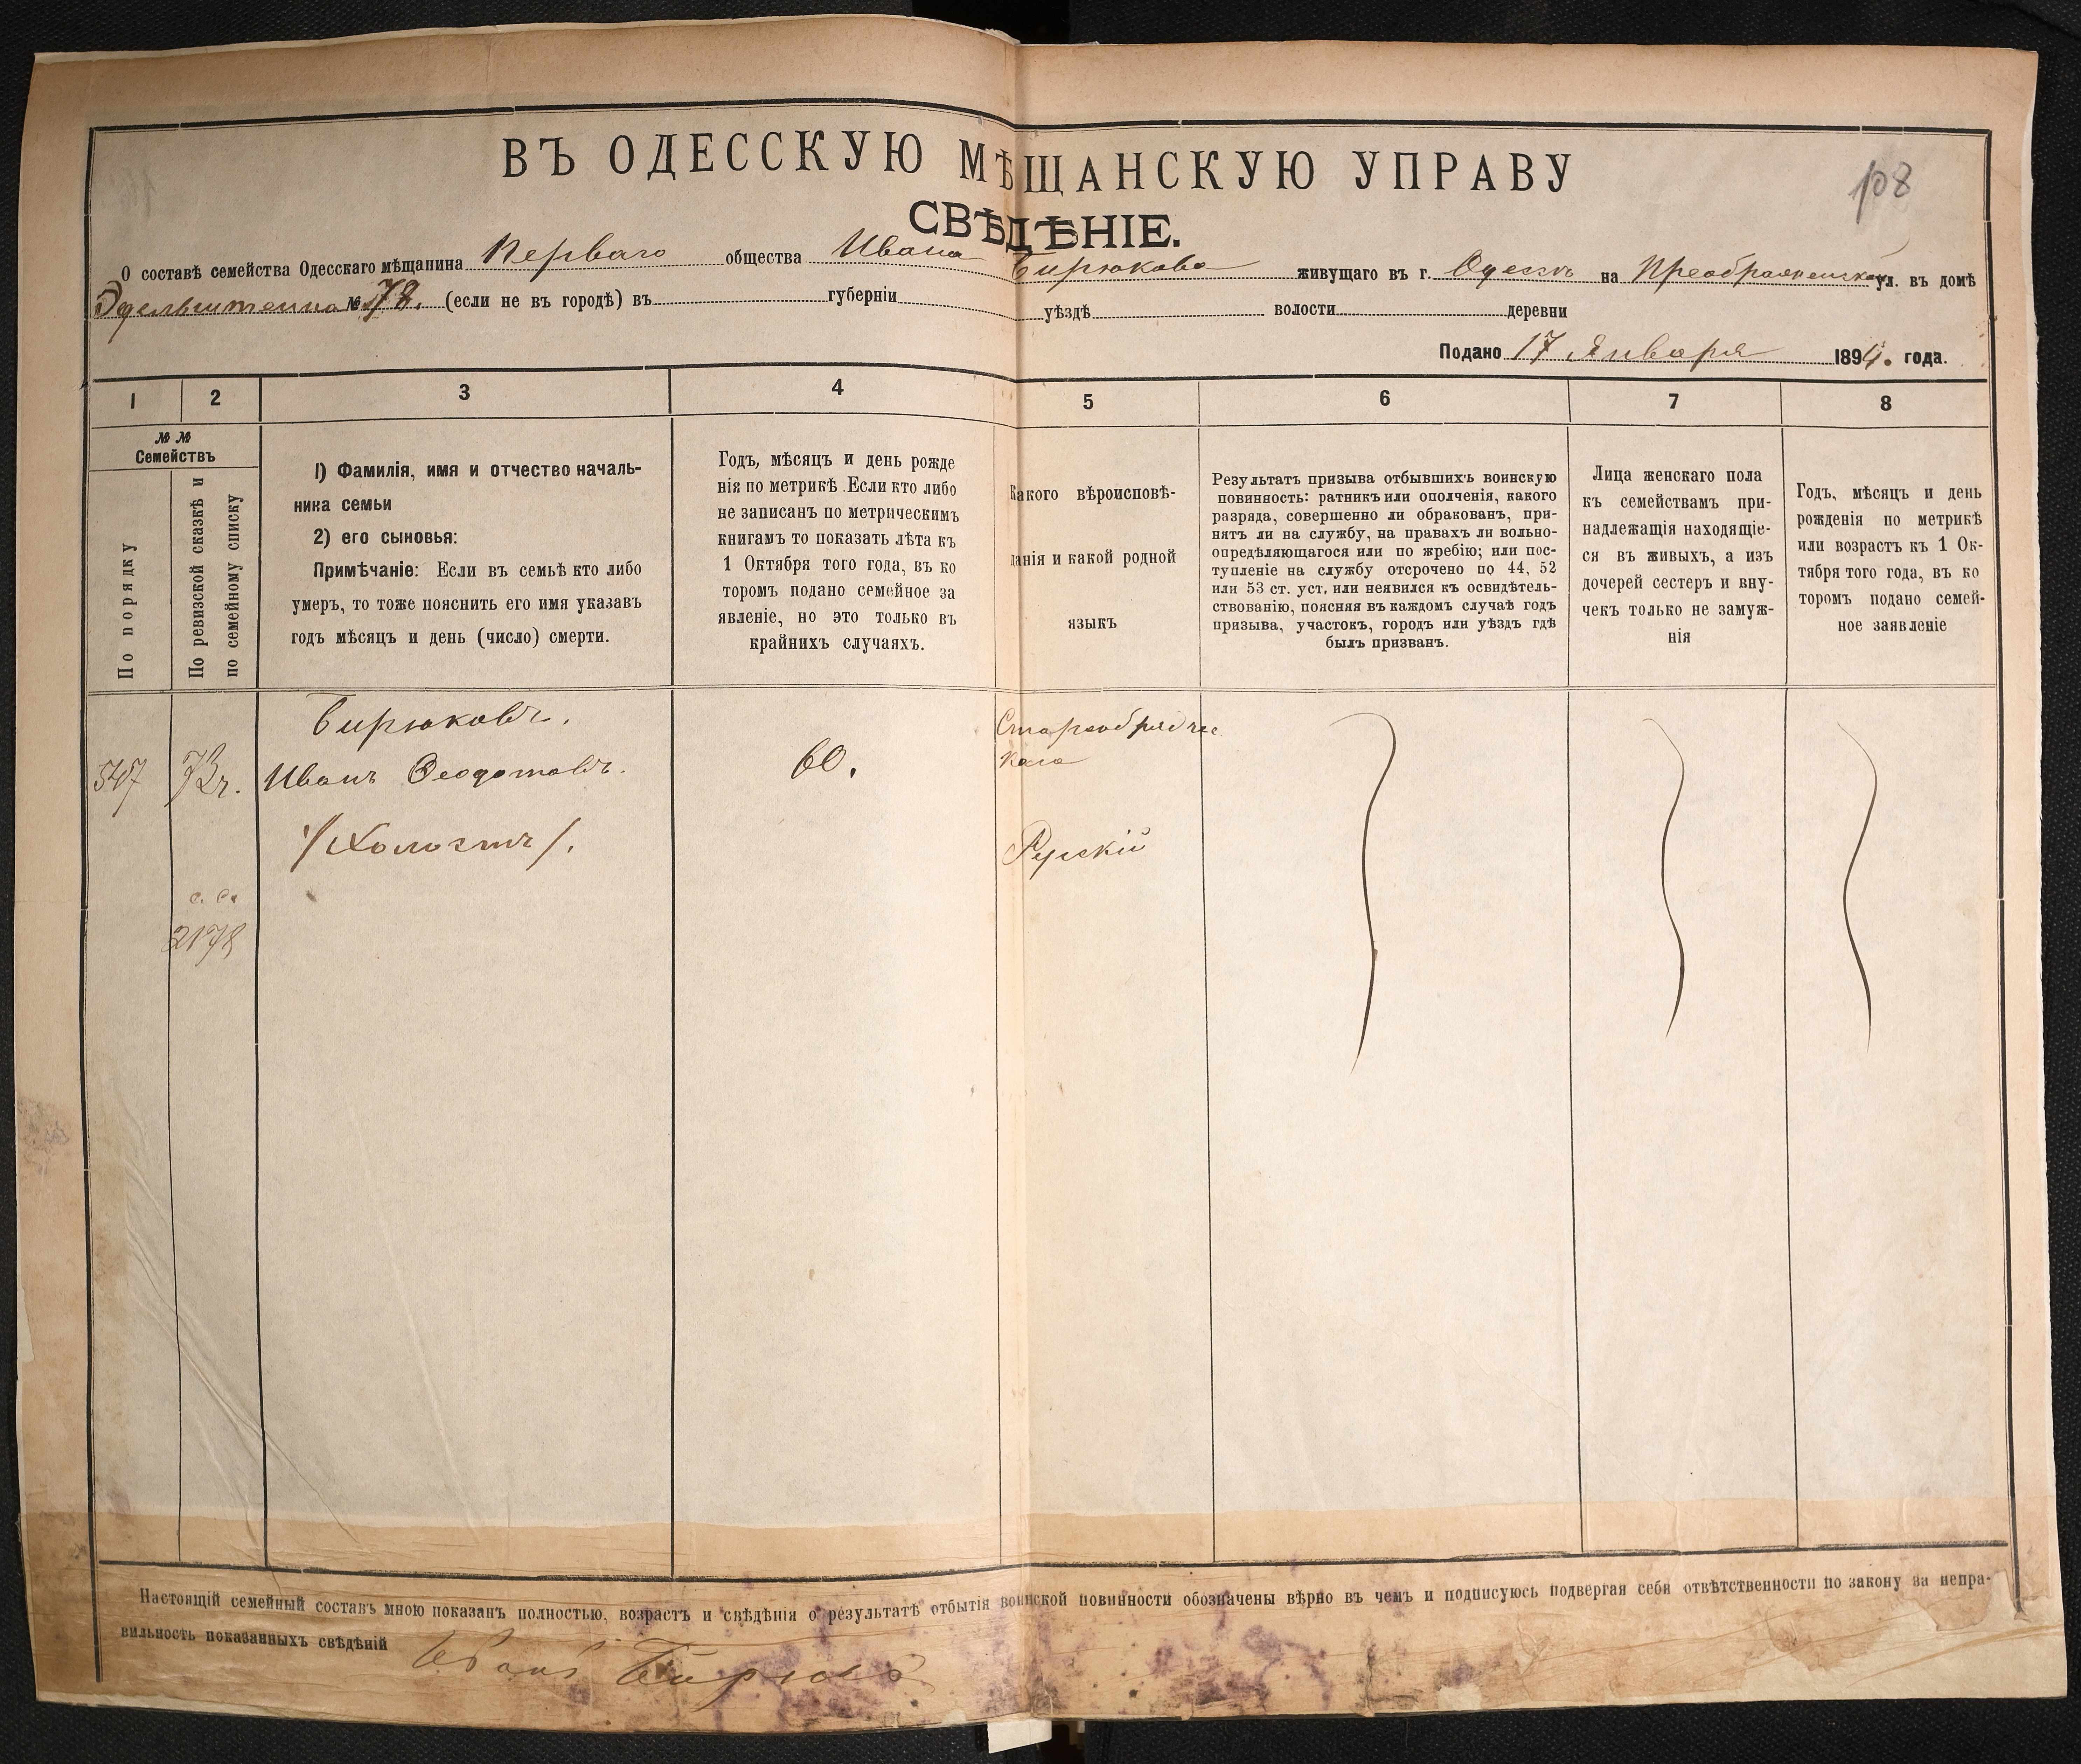 108
ВЪ ОДЕССКУЮ МѢЩАНСКУЮ УПРАВУ
СВѢДѢНІЕ.
О составѣ семейства Одесскаго мѣщанина Перваго общества Ивана Бирюкова живущаго въ г. Одессѣ на Преображенской ул. въ домѣ
Эдельштейна № 78. (если не въ городѣ) въ губерніи уѣздѣ волости деревни
Подано 17 Января 1894. года.
1 2 3 4 5 6 7 8
№ №
Семействъ
По порядку
По ревизской сказкѣ и
по семейному списку
1) Фамилія, имя и отчество началь-
ника семьи
2) его сыновья:
Примѣчаніе: Если въ семьѣ кто либо
умеръ, то тоже пояснить его имя указавъ
годъ мѣсяцъ и день (число) смерти.
Годъ, мѣсяцъ и день рожде
нія по метрикѣ. Если кто либо
не записанъ по метрическимъ
книгамъ то показать лѣта къ
1 Октября того года, въ ко
торомъ подано семейное за
явленіе, но это только въ
крайнихъ случаяхъ.
Какого вѣроисповѣ-
данія и какой родной
языкъ
Результатъ призыва отбывшихъ воинскую
повинность: ратникъ или ополченія, какого
разряда, совершенно ли обракованъ, при-
нятъ ли на службу, на правахъ ли вольно-
опредѣляющагося или по жребію; или пос-
тупленіе на службу отсрочено по 44, 52
или 53 ст. уст, или неявился къ освидѣтель-
ствованію, поясняя въ каждомъ случаѣ годъ
призыва, участокъ, городъ или уѣздъ гдѣ
былъ призванъ.
Лица женскаго пола
къ семействамъ при-
надлежащія находящіе-
ся въ живыхъ, а изъ
дочерей сестеръ и вну-
чекъ только не замуж-
нія
Годъ, мѣсяцъ и день
рожденія по метрикѣ
или возрастъ къ 1 Ок-
тября того года, въ ко
торомъ подано семей-
ное заявленіе
Бирюковъ.
547
Иванъ Ѳеодотовъ.
/Холостъ/.
60.
Старообрядчес
каго
Рускій
с. с.
2178
Настоящій семейный составъ мною показанъ полностью, возрастъ и свѣдѣнія о результатѣ отбытія воинской повинности обозначены вѣрно въ чемъ и подписуюсь подвергая себя отвѣтственности по закону за непра-
вильность показанныхъ свѣдѣній
Иванъ